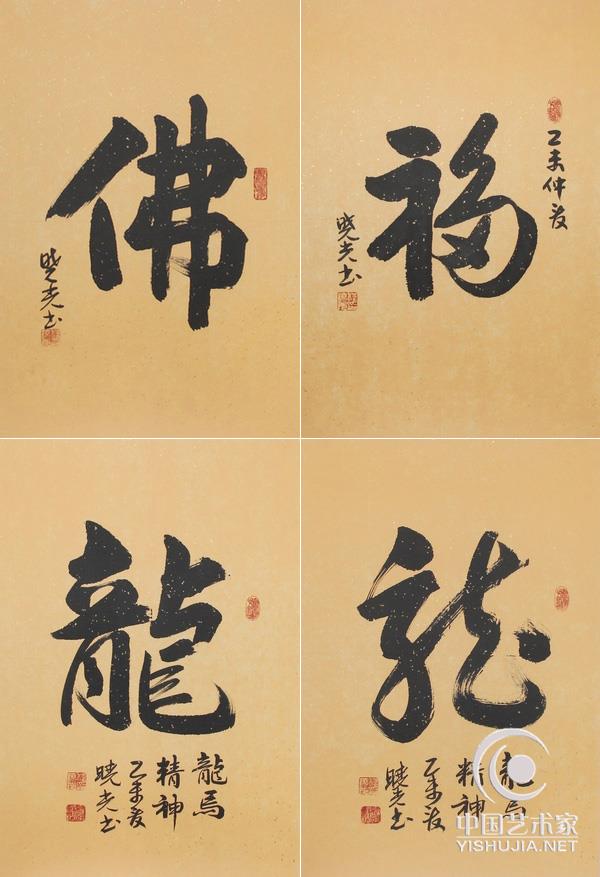 佛
晓光书
福
乙未仲夏
晓光书
龍
龍馬
精神
乙未夏
晓光书
龍
龍馬
精神
乙未夏
晓光书
中国艺术家
YISHUJIA.NET